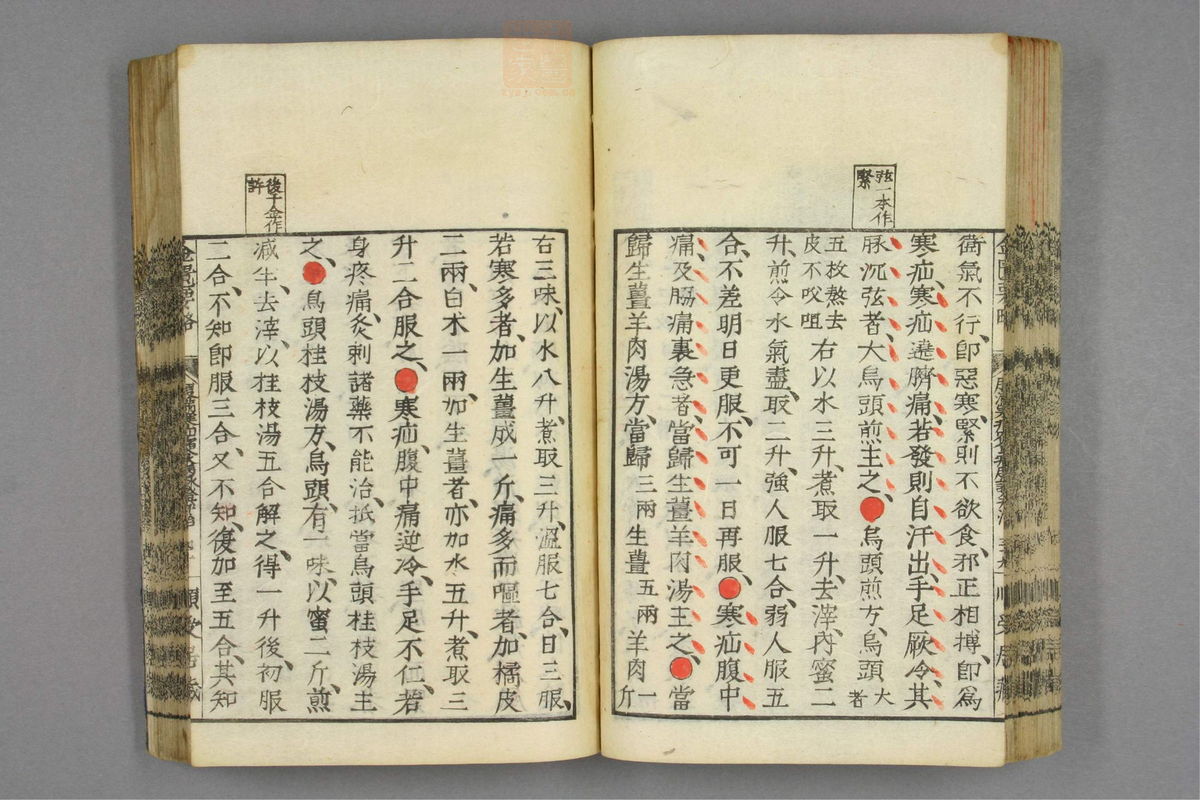 弦一本作
緊
衛氣不行、卽惡寒、緊則不欲食、邪正相搏、卽爲
寒疝、寒疝遶臍痛、若發則自汗出、手足厥冷、其
脉沉弦者、大烏頭煎主之、烏頭煎方、烏頭大者
五枚熬去皮不咬咀右以水三升、煮取一升、去滓、內蜜二
升、煎令水氣盡、取二升、強人服七合、弱人服五
合、不差明日更服、不可一日再服、寒疝腹中
痛、及脇痛裏急者、當歸生薑羊肉湯主之、當
歸生薑羊肉湯方、當歸三兩生薑五兩羊肉一斤
後千金作
許
右三味、以水八升、煮取三升、溫服七合、日三服、
若寒多者、加生薑成一斤、痛多而嘔者、加橘皮
二兩、白朮一兩、加生薑者、亦加水五升、煮取三
升二合服之、寒疝、腹中痛逆冷、手足不仁、若
身疼痛、灸刺諸藥不能治、抵當烏頭桂枝湯主
之、烏頭桂枝湯方、烏頭、有一味、以蜜二斤、煎
減半、去滓、以桂枝湯五合解之、得一升後、初服
二合、不知卽服三合、又不知、復加至五合、其知